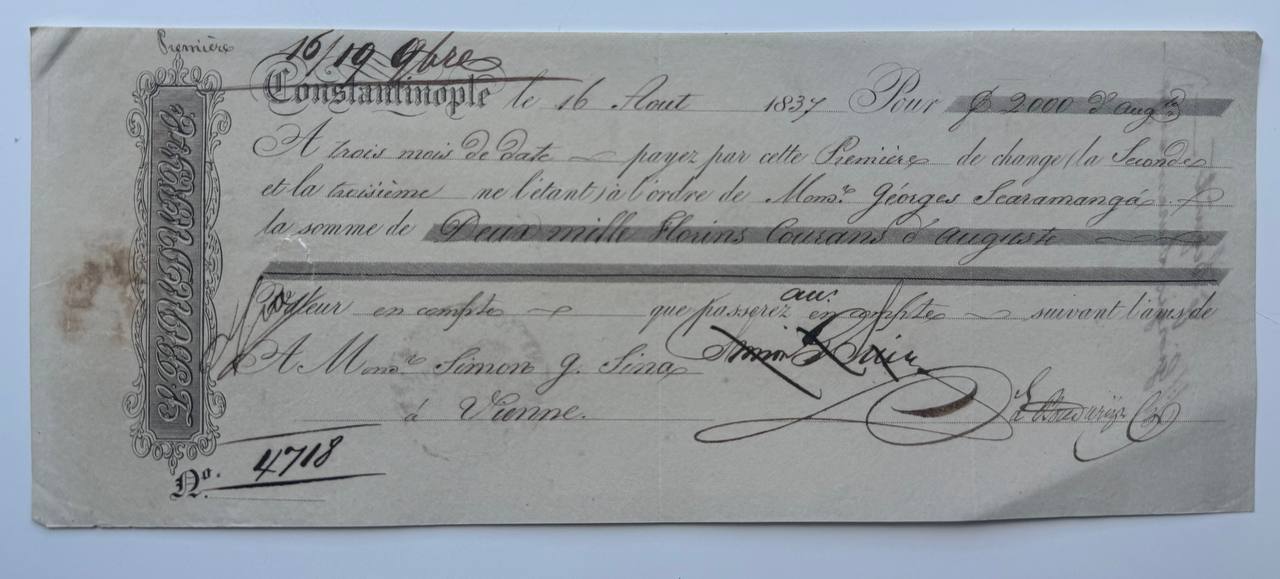 Première
16/19 9bre
Constantinople le 16 Aout 1837 Pour ƒ 2000 d'aug.te
A trois mois de date payez par cette Première de change (la Seconde
et la troisième ne l'étant) à l'ordre de Mons.r Géorges Scaramangá
la somme de Deux mille Florins Courans d'auguste
Valeur en compte que passerez en compte suivant l'avis de
A Mons.r Simon G. Sina
à Vienne.
No. 4718